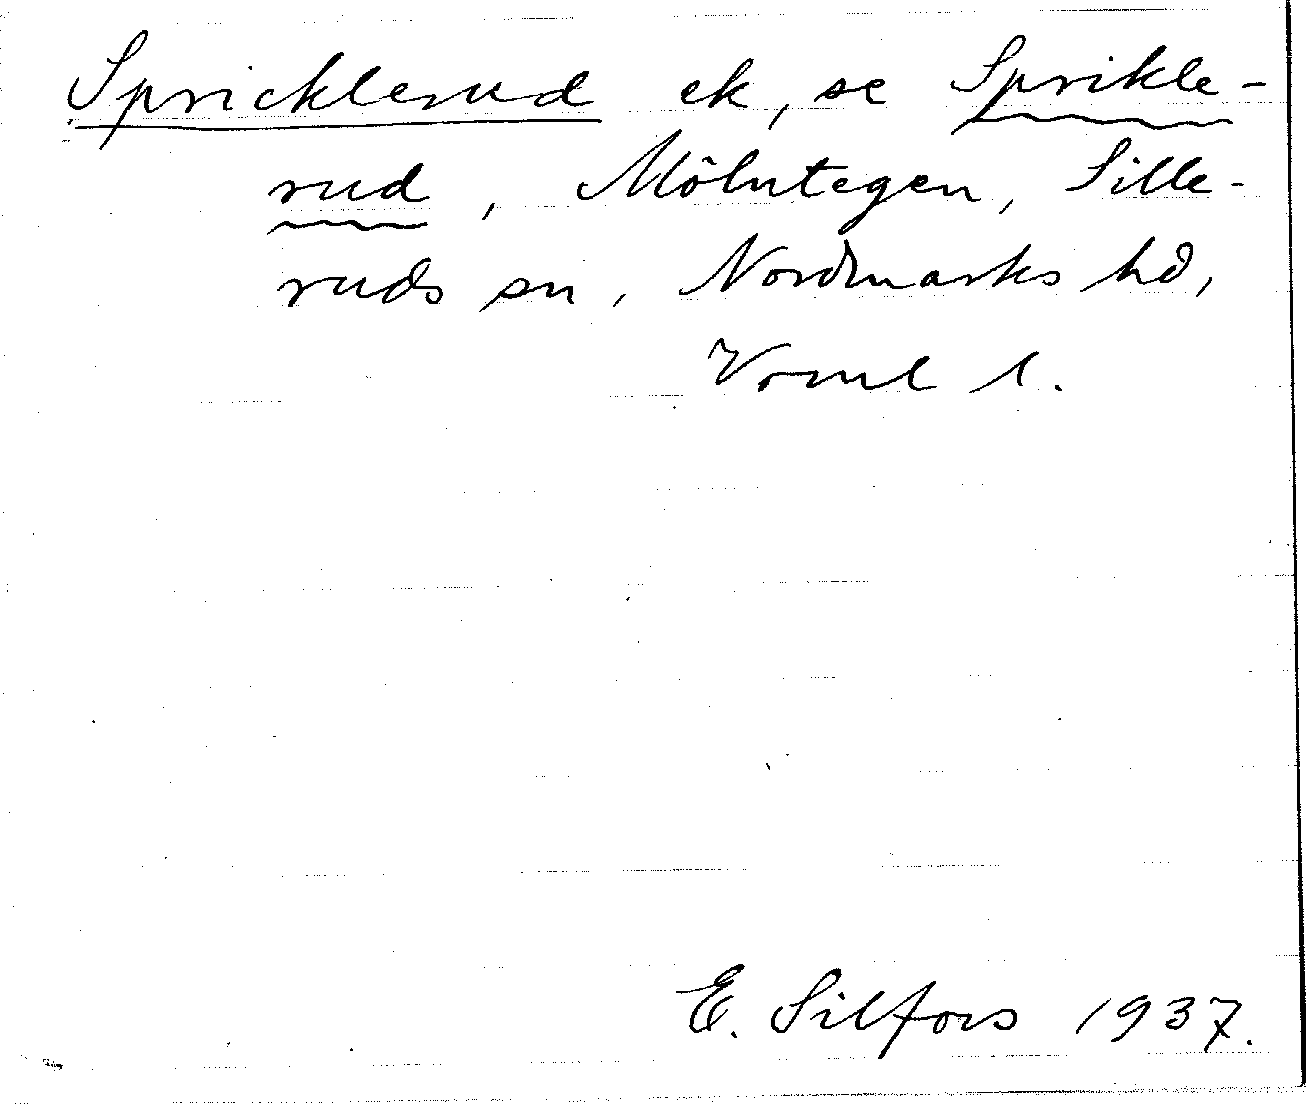 Spricklerud ek, se Sprikle-
rud, Mölntegen, Sille-
ruds sn, Nordmarks hd,
Vrml l.
E. Silfors 1937.